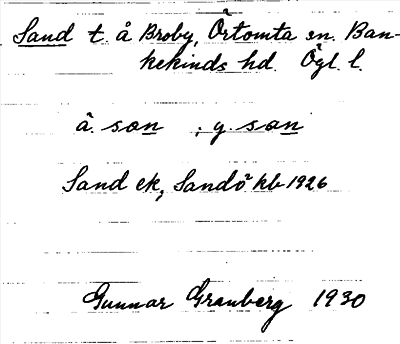 Sand t. å Broby, Örtomta sn. Ban-
kekinds hd. Ögl. l.
ä. son ; y. son
Sand ek, Sandö kb 1926
Gunnar Granberg 1930